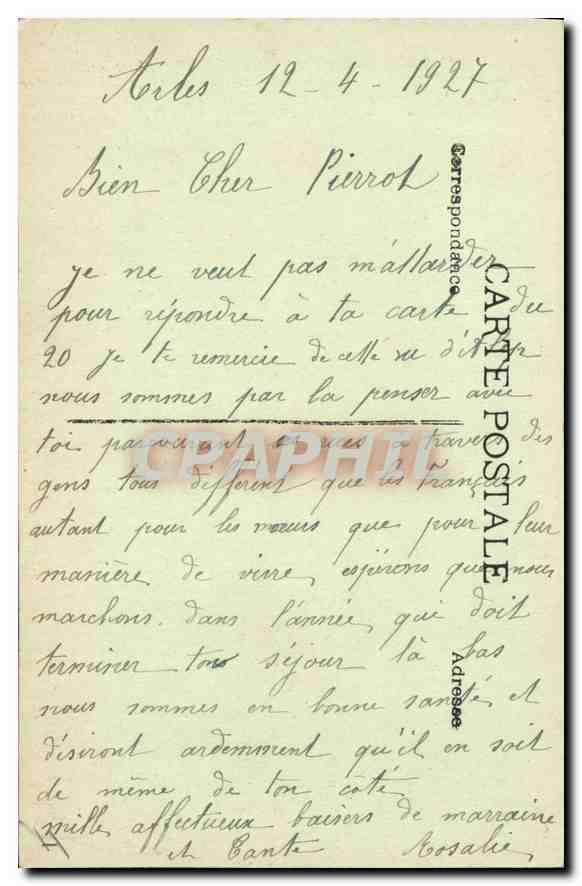 Arles 12 - 4 - 1927
Bien Cher Pierrot
Correspondance
je ne veut pas m'attarder
CARTE POSTALE
pour répondre à ta carte du
20 je te remercie de cette vue d'Alep
nous sommes par la penser avec
toi parcourant a travers des
CPAPHIL
gens tous différent que les Français
autant pour les mœurs que pour leur
manière de vivre, espérons que nous
marchons dans l'année, qui doit
terminer ton séjour là bas
Adresse
nous sommes en bonne santé et
désiront ardemment qu'il en soit
de même de ton côté
mille affectueux baisers de marraine
et Tante Rosalie